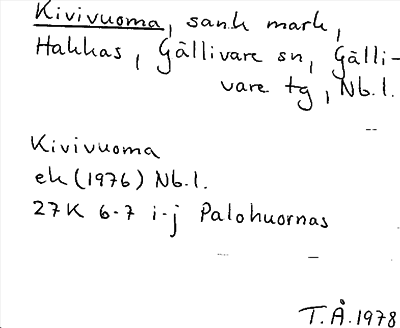 Kivivuoma, sank mark,
Hakkas, Gällivare sn, Gälli-
vare tg, Nb.l.
Kivivuoma
ek (1976) Nb.l.
27K 6-7 i-j Palohuornas
T.Å.1978